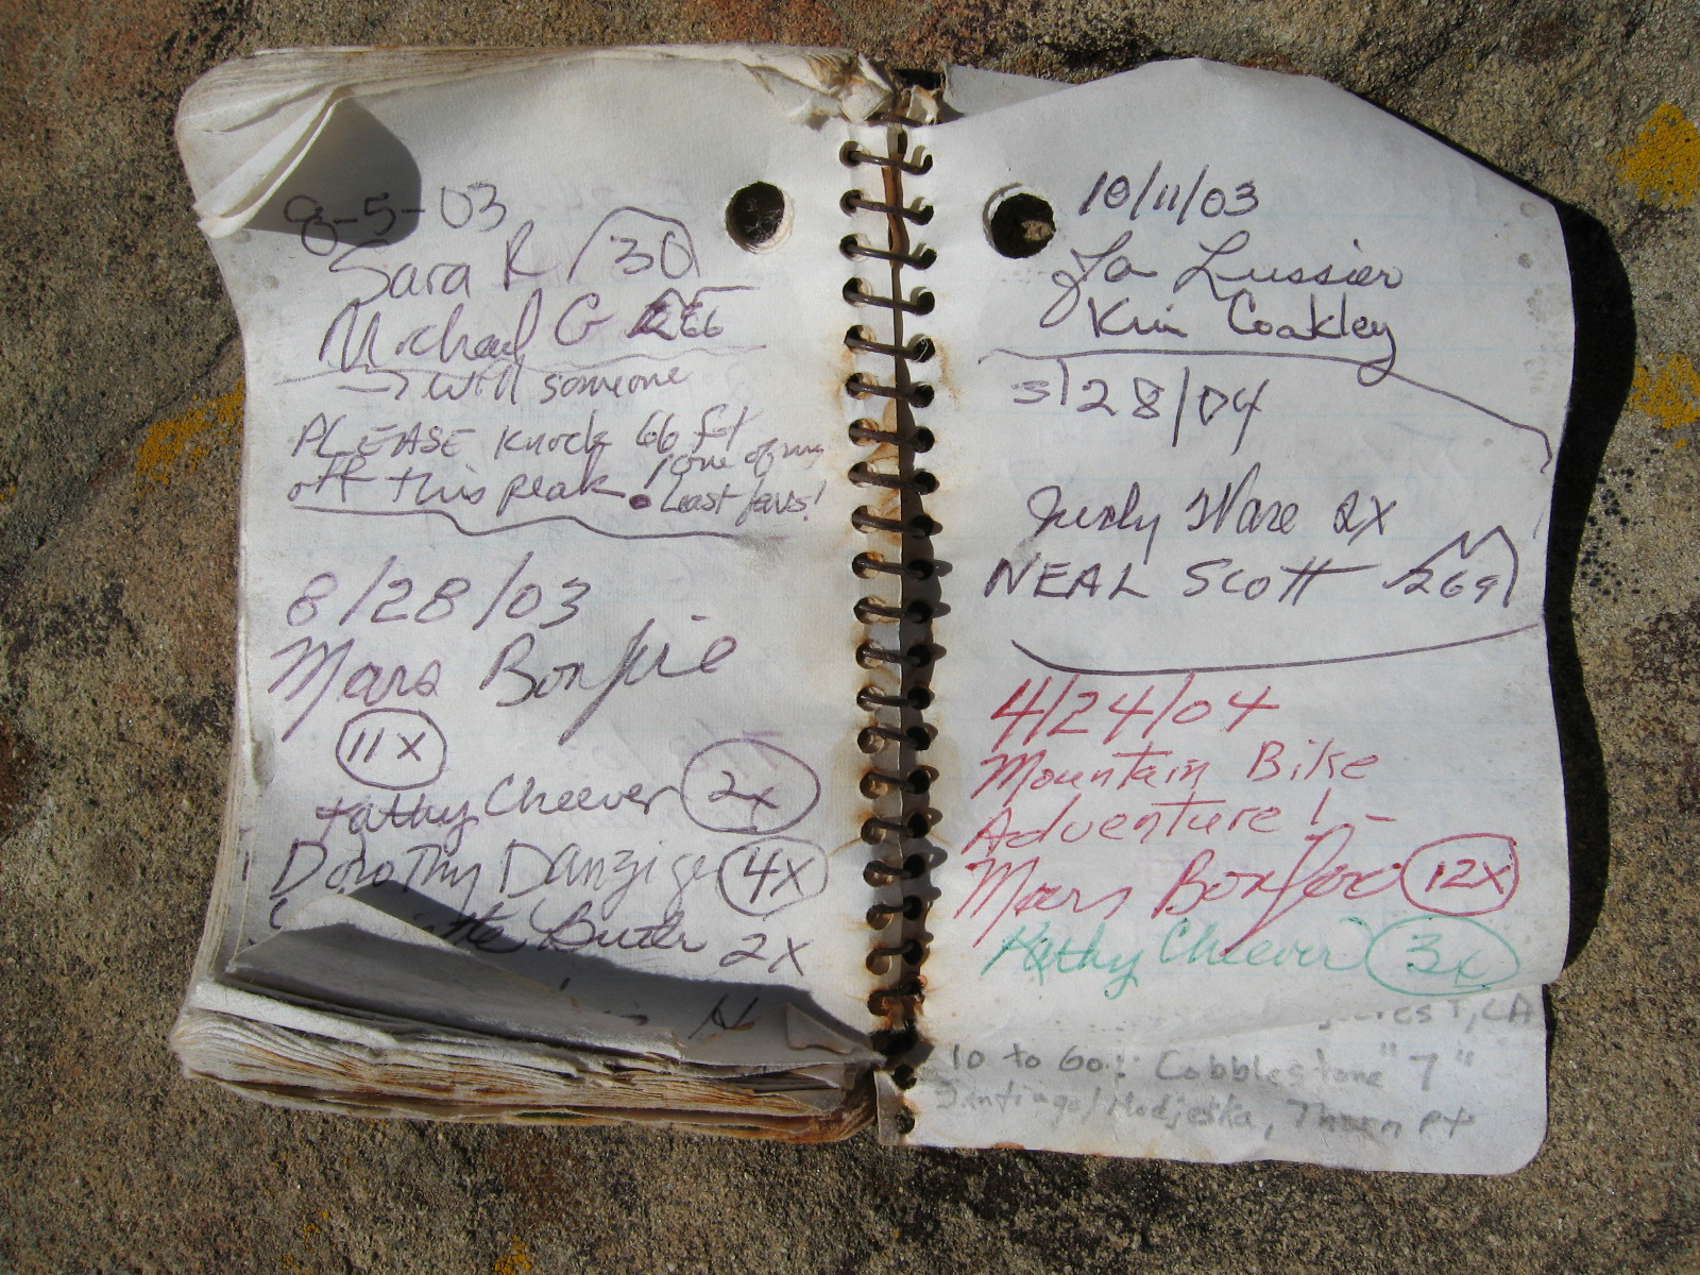 8-5-03
Sara R 30
Michael G 266
→ will someone
PLEASE knock 66 ft
off this peak! one of my
least favs!
8/28/03
Mars Bonfire
11X
Kathy Cheever 2x
Dorothy Danziger 4X
Buth 2X
10/11/03
Jo Lussier
Kim Coakley
3/28/04
Judy Ware 2X
NEAL Scott 269
4/24/04
Mountain Bike
Adventure! -
Mars Bonfire 12X
Kathy Cheever 3x
CA
10 to Go!: Cobblestone "7"
Santiago/Modjeska, Thorn Pt